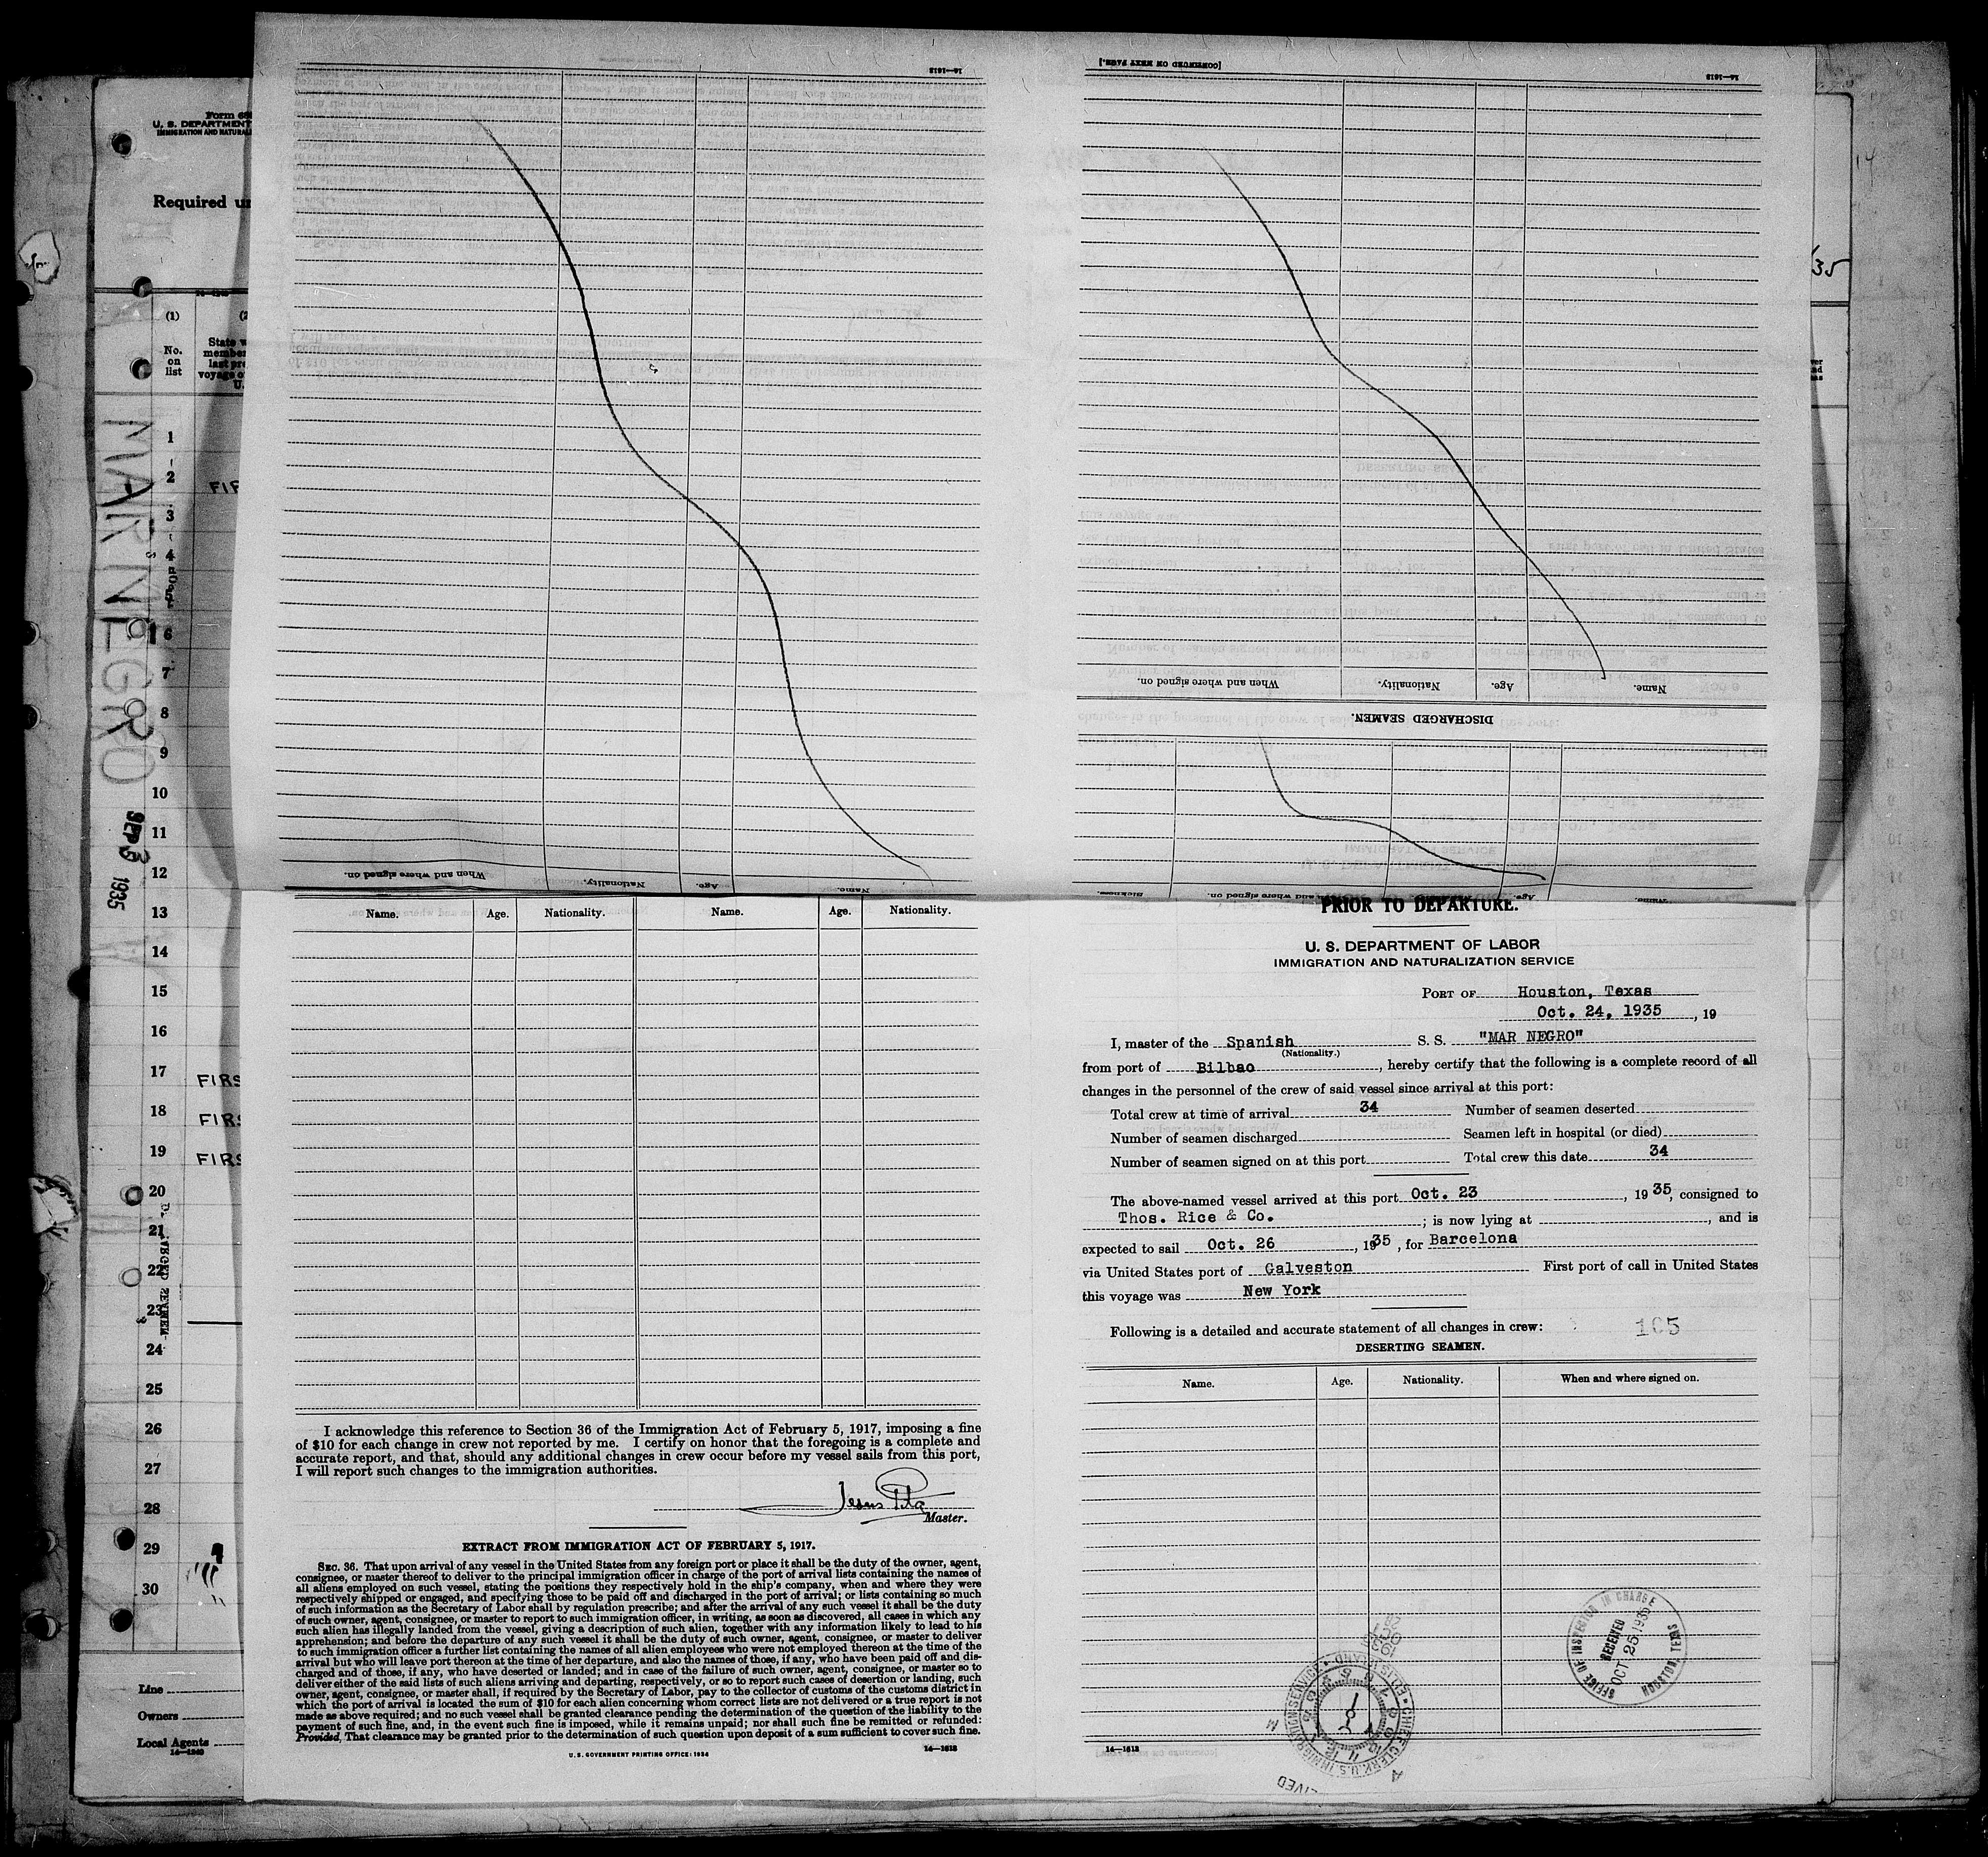 Form 68
U. S. DEPARTMENT
IMMIGRATION AND NATURAL
Required un
(1)
No.
on
list
State w
member
last pre
voyage o
U.
MAR NEGRO
SEP 3 1935
1
2
FIR
3
4
6
7
8
9
10
11
12
13
14
15
16
17 FIRS
18 FIRS
19 FIRS
20
21
22
23
24
25
26
27
28
29
30
Line
Owners
Local Agents
14—1240
35
14
14—1612
[CONTINUED ON NEXT PAGE.]
14—1612
When and where signed on.
Nationality.
Age.
Name.
DISCHARGED SEAMEN.
When and where signed on.
Nationality.
Age.
Name.
Sickness.
When and where signed on.
Age.
Name.
Name. Age. Nationality. Name. Age. Nationality.
I acknowledge this reference to Section 36 of the Immigration Act of February 5, 1917, imposing a fine
of $10 for each change in crew not reported by me. I certify on honor that the foregoing is a complete and
accurate report, and that, should any additional changes in crew occur before my vessel sails from this port,
I will report such changes to the immigration authorities.
Jesus Pita
Master.
EXTRACT FROM IMMIGRATION ACT OF FEBRUARY 5, 1917.
SEC. 36. That upon arrival of any vessel in the United States from any foreign port or place it shall be the duty of the owner, agent,
consignee, or master thereof to deliver to the principal immigration officer in charge of the port of arrival lists containing the names of
all aliens employed on such vessel, stating the positions they respectively hold in the ship's company, when and where they were
respectively shipped or engaged, and specifying those to be paid off and discharged in the port of arrival; or lists containing so much
of such information as the Secretary of Labor shall by regulation prescribe; and after the arrival of any such vessel it shall be the duty
of such owner, agent, consignee, or master to report to such immigration officer, in writing, as soon as discovered, all cases in which any
such alien has illegally landed from the vessel, giving a description of such alien, together with any information likely to lead to his
apprehension; and before the departure of any such vessel it shall be the duty of such owner, agent, consignee, or master to deliver
to such immigration officer a further list containing the names of all alien employees who were not employed thereon at the time of the
arrival but who will leave port thereon at the time of her departure, and also the names of those, if any, who have been paid off and dis-
charged and of those, if any, who have deserted or landed; and in case of the failure of such owner, agent, consignee, or master so to
deliver either of the said lists of such aliens arriving and departing, respectively, or so to report such cases of desertion or landing, such
owner, agent, consignee, or master shall, if required by the Secretary of Labor, pay to the collector of customs of the customs district in
which the port of arrival is located the sum of $10 for each alien concerning whom correct lists are not delivered or a true report is not
made as above required; and no such vessel shall be granted clearance pending the determination of the question of the liability to the
payment of such fine, and, in the event such fine is imposed, while it remains unpaid; nor shall such fine be remitted or refunded:
Provided, That clearance may be granted prior to the determination of such question upon deposit of a sum sufficient to cover such fine.
U. S. GOVERNMENT PRINTING OFFICE: 1934
14—1612
PRIOR TO DEPARTURE.
U. S. DEPARTMENT OF LABOR
IMMIGRATION AND NATURALIZATION SERVICE
PORT OF Houston, Texas
Oct. 24, 1935, 19
I, master of the Spanish S. S. "MAR NEGRO"
(Nationality.)
from port of Bilbao, hereby certify that the following is a complete record of all
changes in the personnel of the crew of said vessel since arrival at this port:
Total crew at time of arrival 34 Number of seamen deserted
Number of seamen discharged Seamen left in hospital (or died)
Number of seamen signed on at this port Total crew this date 34
The above-named vessel arrived at this port Oct. 23, 1935, consigned to
Thos. Rice & Co.; is now lying at , and is
expected to sail Oct. 26, 1935, for Barcelona
via United States port of Galveston First port of call in United States
this voyage was New York
Following is a detailed and accurate statement of all changes in crew: 105
DESERTING SEAMEN.
Name. Age. Nationality. When and where signed on.
OFFICE OF INSPECTOR IN CHARGE
RECEIVED
OCT 25 1935
HOUSTON, TEXAS
CHIEF CLERK, U.S. IMMIGRATION SERVICE
ELLIS ISLAND
14—1612